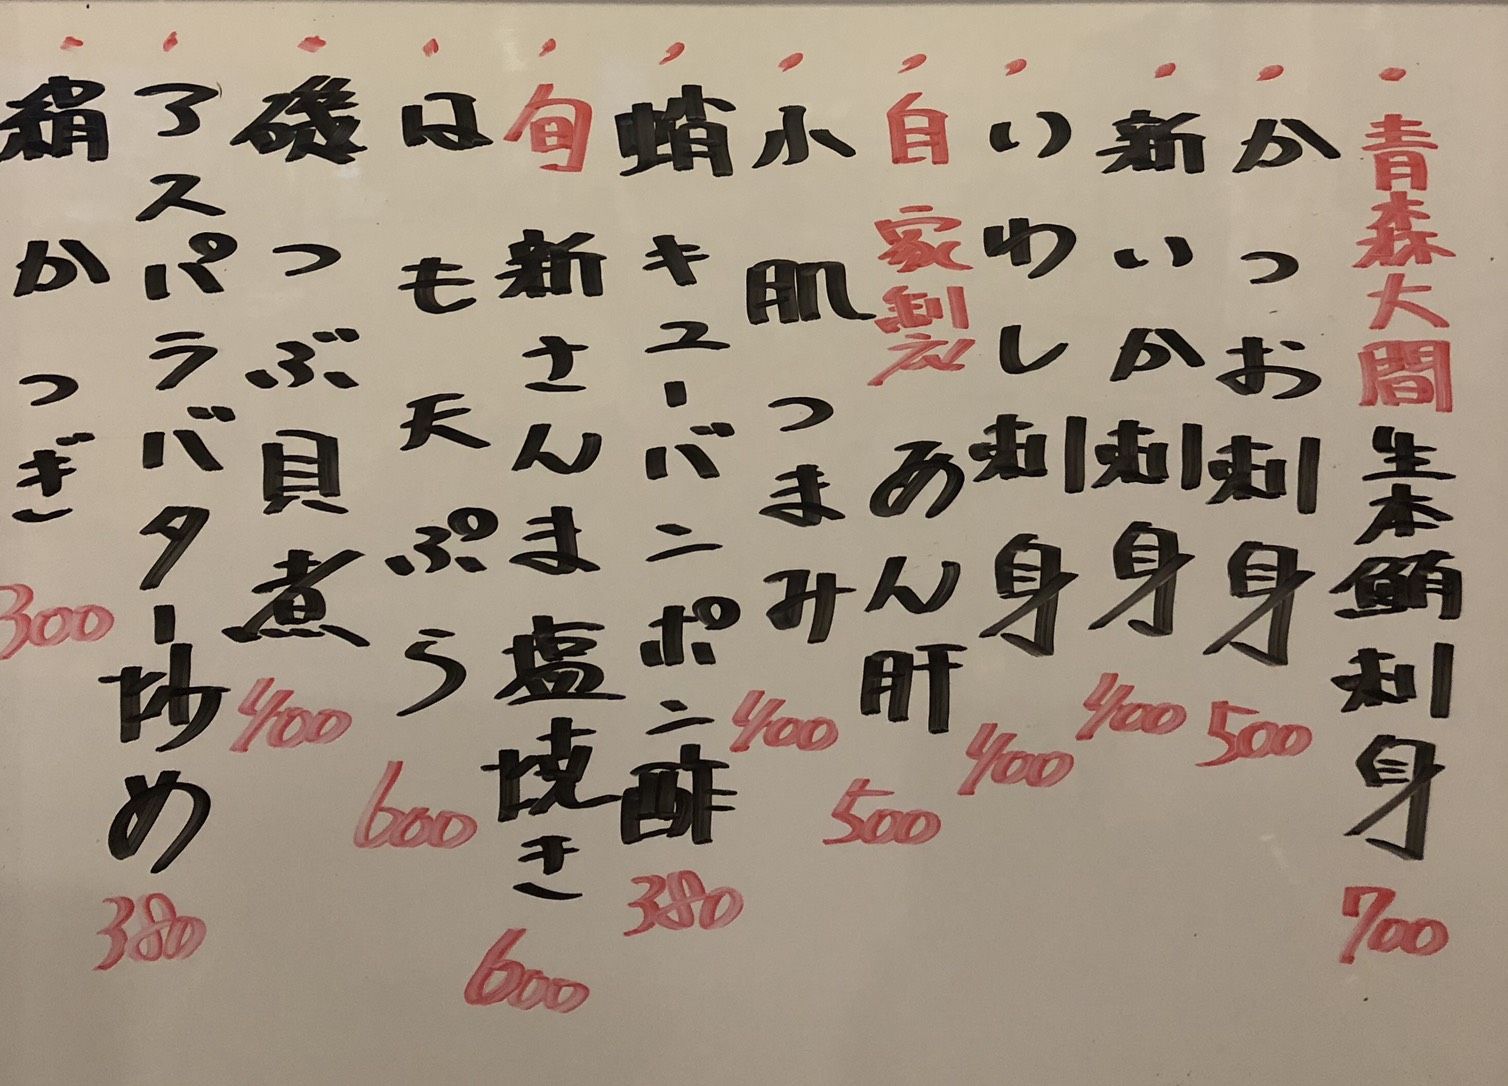 ・青森大間生本鮪刺身 700
・かつお刺身 500
・新いか刺身 400
・いわし刺身 400
・自家製あん肝 500
・小肌つまみ 400
・蛸キューバンポン酢 380
・旬新さんま塩焼き 600
・はも天ぷら 600
・磯つぶ貝煮 400
・アスパラバター炒め 380
・絹かつぎ 300